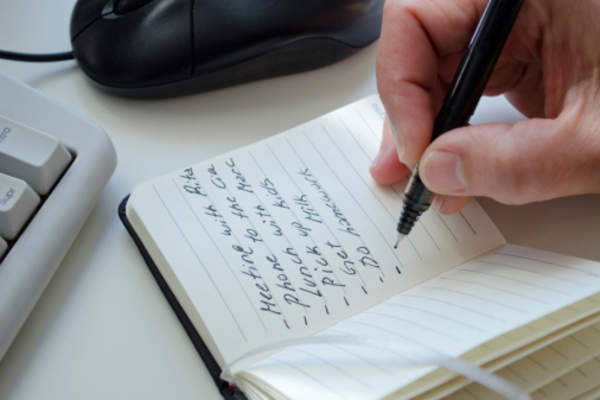 Meeting with
- Phone to the Marc
- Lunch with kids
- Pick up
- Get Milk
- Do homework
-